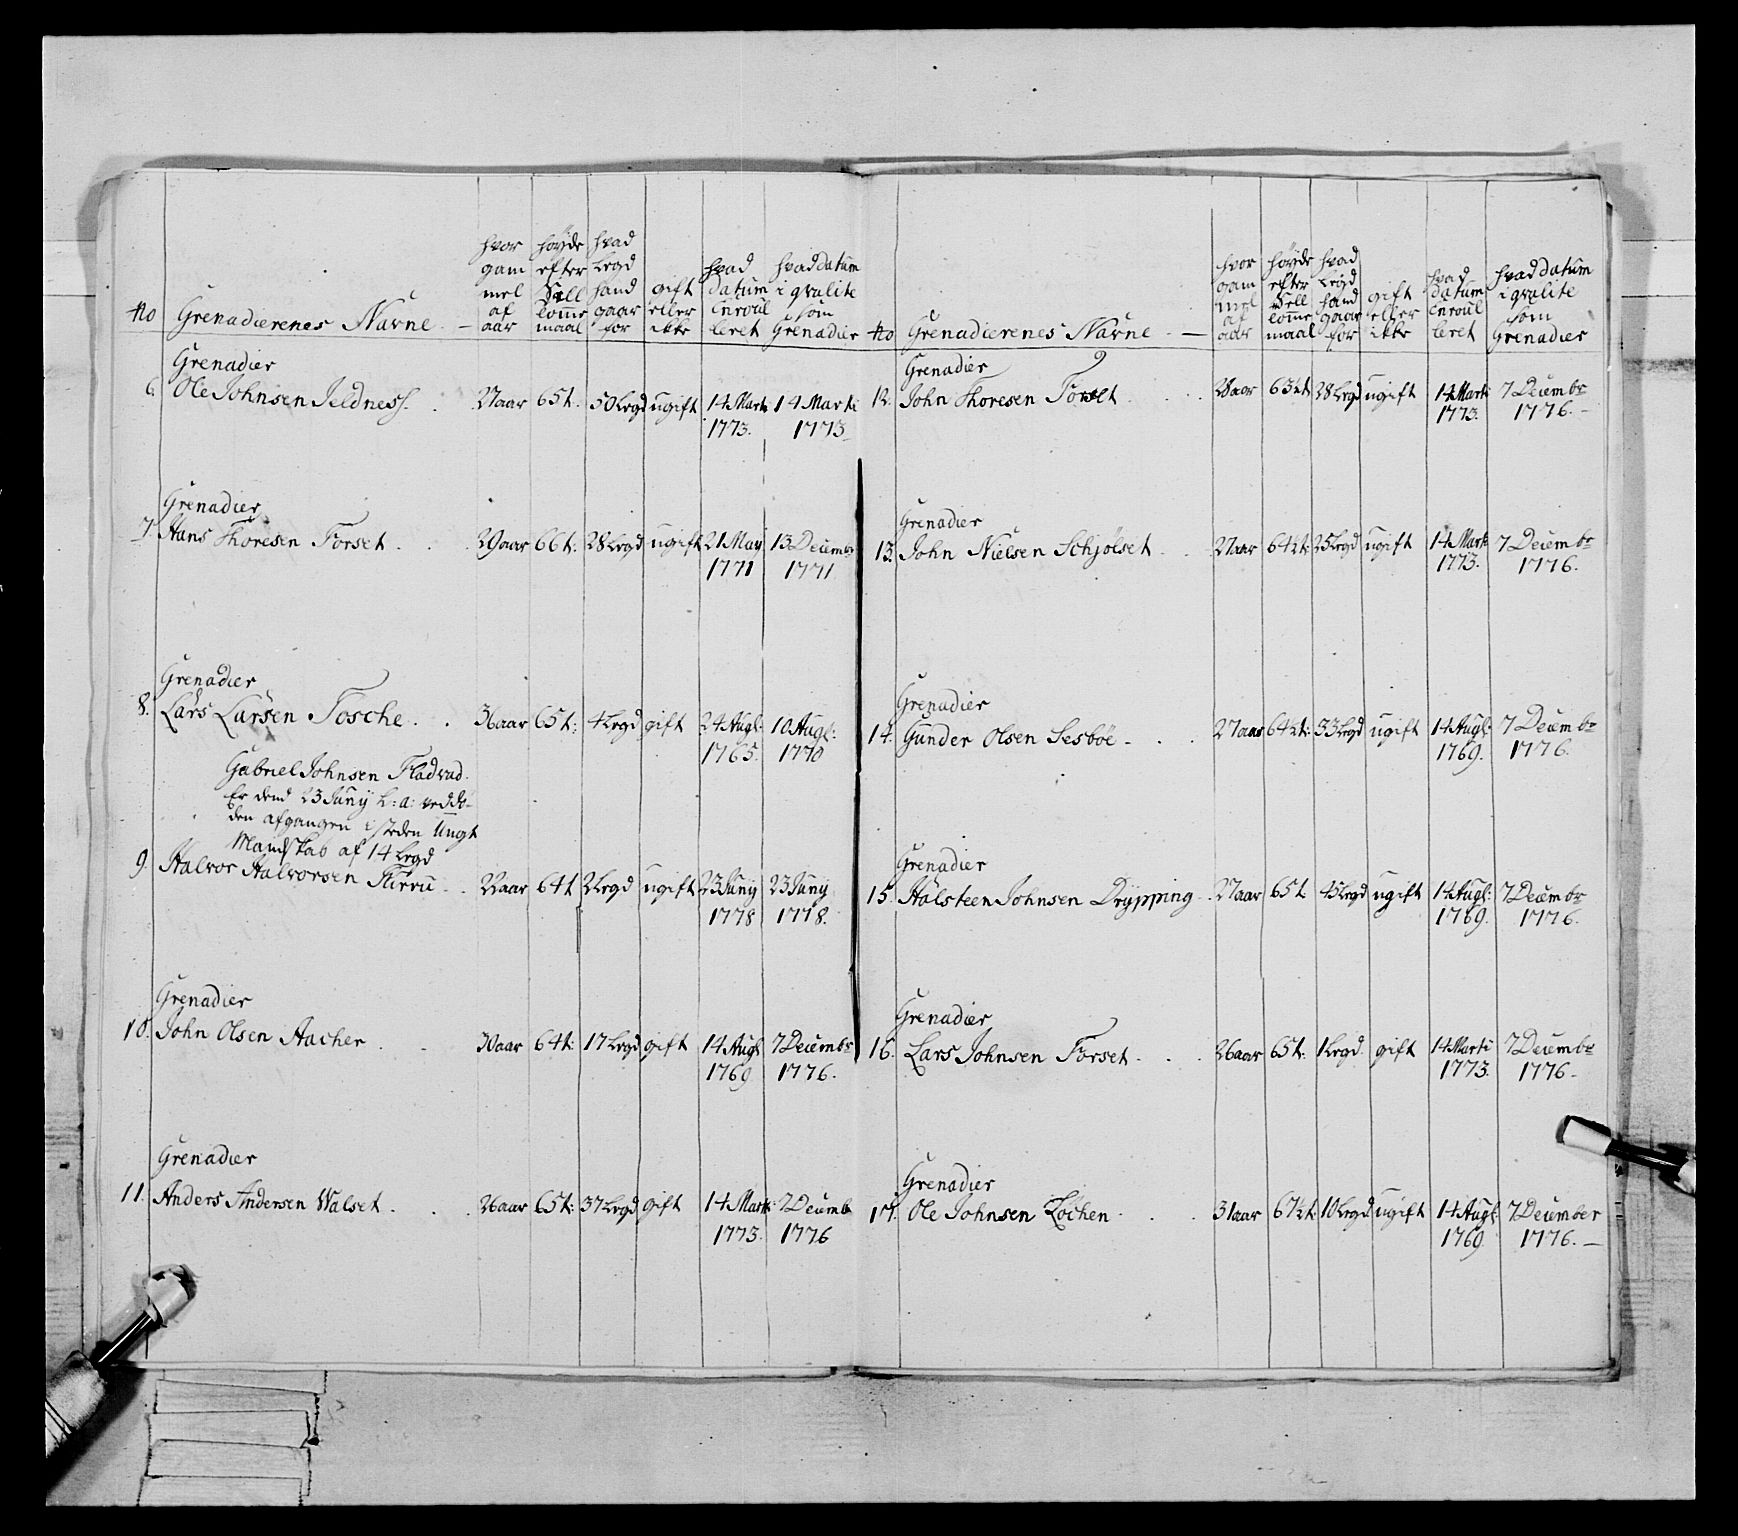 No Grenadierenes Navne. — hvor gam mel af aar høyde efter Sell lomme maal hvad Legd hand gaar for gift eller ikke hvad datum Enroul leret hvad datum i qvalite som Grenadier
Grenadier
6. Ole Johnsen Jeldness. . 27 aar 65 t. 30 Legd ugift 14 Marti 14 Marti
1773. 1773
Grenadier
7. Hans Thoresen Forset . . . 29 aar 66 t: 28 Legd ugift 21 May 13 Decembr
1771 1771
Grenadier
8. Lars Larsen Fosche . . 36 aar 65 t: 4 Legd gift 24 Augl: 10 Augl:
1765. 1770
Gabriel Johnsen Fladvad.
Er dend 23 Juny h: a: ved dö-
den afgangen i steden Ungt
Mandskab af 14 Legd
9. Halvor Halvorsen Furru . . 22 aar 64 t 2 Legd ugift 23 Juny 23 Juny
1778 1778.
Grenadier
10. John Olsen Aacher . . 30 aar 64 t: 17 Legd gift 14 Augl 7 Decembr
1769 1776.
Grenadier
11. Anders Andersen Walset . . . 26 aar 65 t: 37 Legd gift 14 Marti 7 Decemb
1773. 1776
No Grenadierenes Navne — hvor gam mel af aar høyde efter Sell lomme maal hvad Legd hand gaar for gift eller ikke hvad datum Enroul leret hvad datum i qvalite som Grenadier
Grenadier
12. John Thoresen Forset . . . 28 aar 63½ t 28 Legd ugift 14 Marti 7 Decembr
1773. 1776. –
Grenadier
13. John Nielsen Schjölset . . 27 aar 64½ t: 25 Legd ugift 14 Marti 7 Decembr
1773. 1776.
Grenadier
14. Gunder Olsen Sesböe – . . 27 aar 64½ t: 33 Legd ugift 14 Augl: 7 Decembr
1769. 1776.
Grenadier
15. Halsteen Johnsen Drypping . 27 aar 65 t. 45 Legd ugift 14 Augl: 7 Decembr
1769. 1776.
Grenadier
16. Lars Johnsen Forset . . . 26 aar 65 t: 1 Legd. gift 14 Marti 7 Decembr
1773. 1776 –
Grenadier
17. Ole Johnsen Lochen . . . 31 aar 67½ t: 10 Legd ugift 14 Augl: 7 December
1769 1776. —